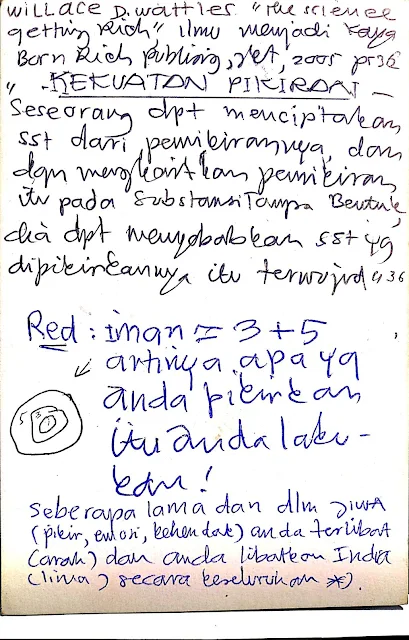 Willace D. Wattles "The science
getting Rich" ilmu menjadi kaya
Born Rich Publising, Net, 2005 p36
" - KEKUATAN PIKIRAN -
Seseorang dpt menciptakan
sst dari pemikirannya, dan
dgn mengkaitkan pemikiran
itu pada Substansi Tanpa Bentuk,
dia dpt menyebabkan sst yg
dipikirkannya itu terwujud" 36
Red : iman = 3 + 5
artinya apa yg
anda pikirkan
itu anda laku-
kan!
5 3 1
seberapa lama dan dlm JIWA
(pikir, emosi, kehendak) anda terlibat
(arah) dan anda libatkan Indra
(lima) secara keseluruhan *)